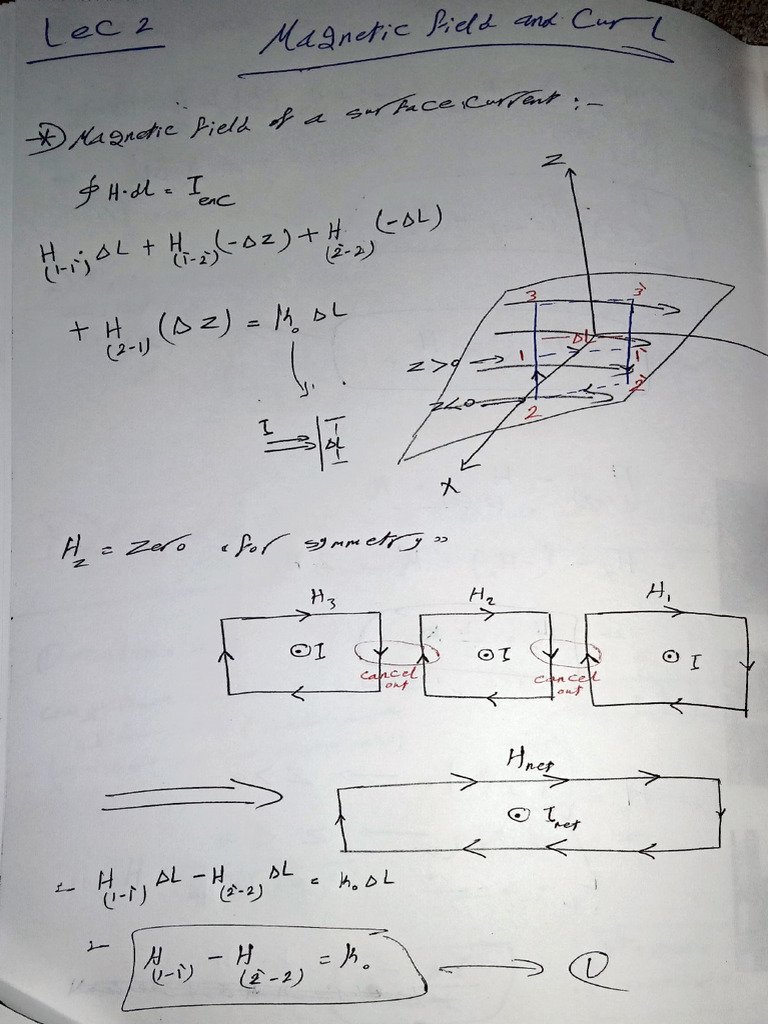 Lec 2
Magnetic field and Curl
* Magnetic field of a surface current :-
∮ H·dl = I_enc
H_(1-1') ΔL + H_(1'-2')(-ΔZ) + H_(2'-2) (-ΔL)
+ H_(2-1) (ΔZ) = K₀ ΔL
I
Δl
Z
3 3'
ΔL
Z>0 1 1'
Z<0 2 2'
X
H_z = Zero "for symmetry"
H₃ H₂ H₁
⊙I ⊙I ⊙I
cancel out cancel out
H_net
⊙ I_net
∴ H_(1-1') ΔL - H_(2'-2) ΔL = K₀ ΔL
∴ H_(1-1') - H_(2'-2) = K₀ → ①